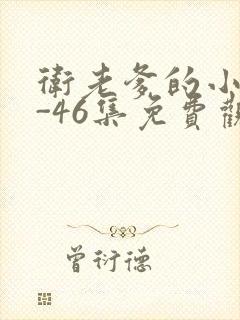 衛老爹的小
-46集免費觀
曾衍德